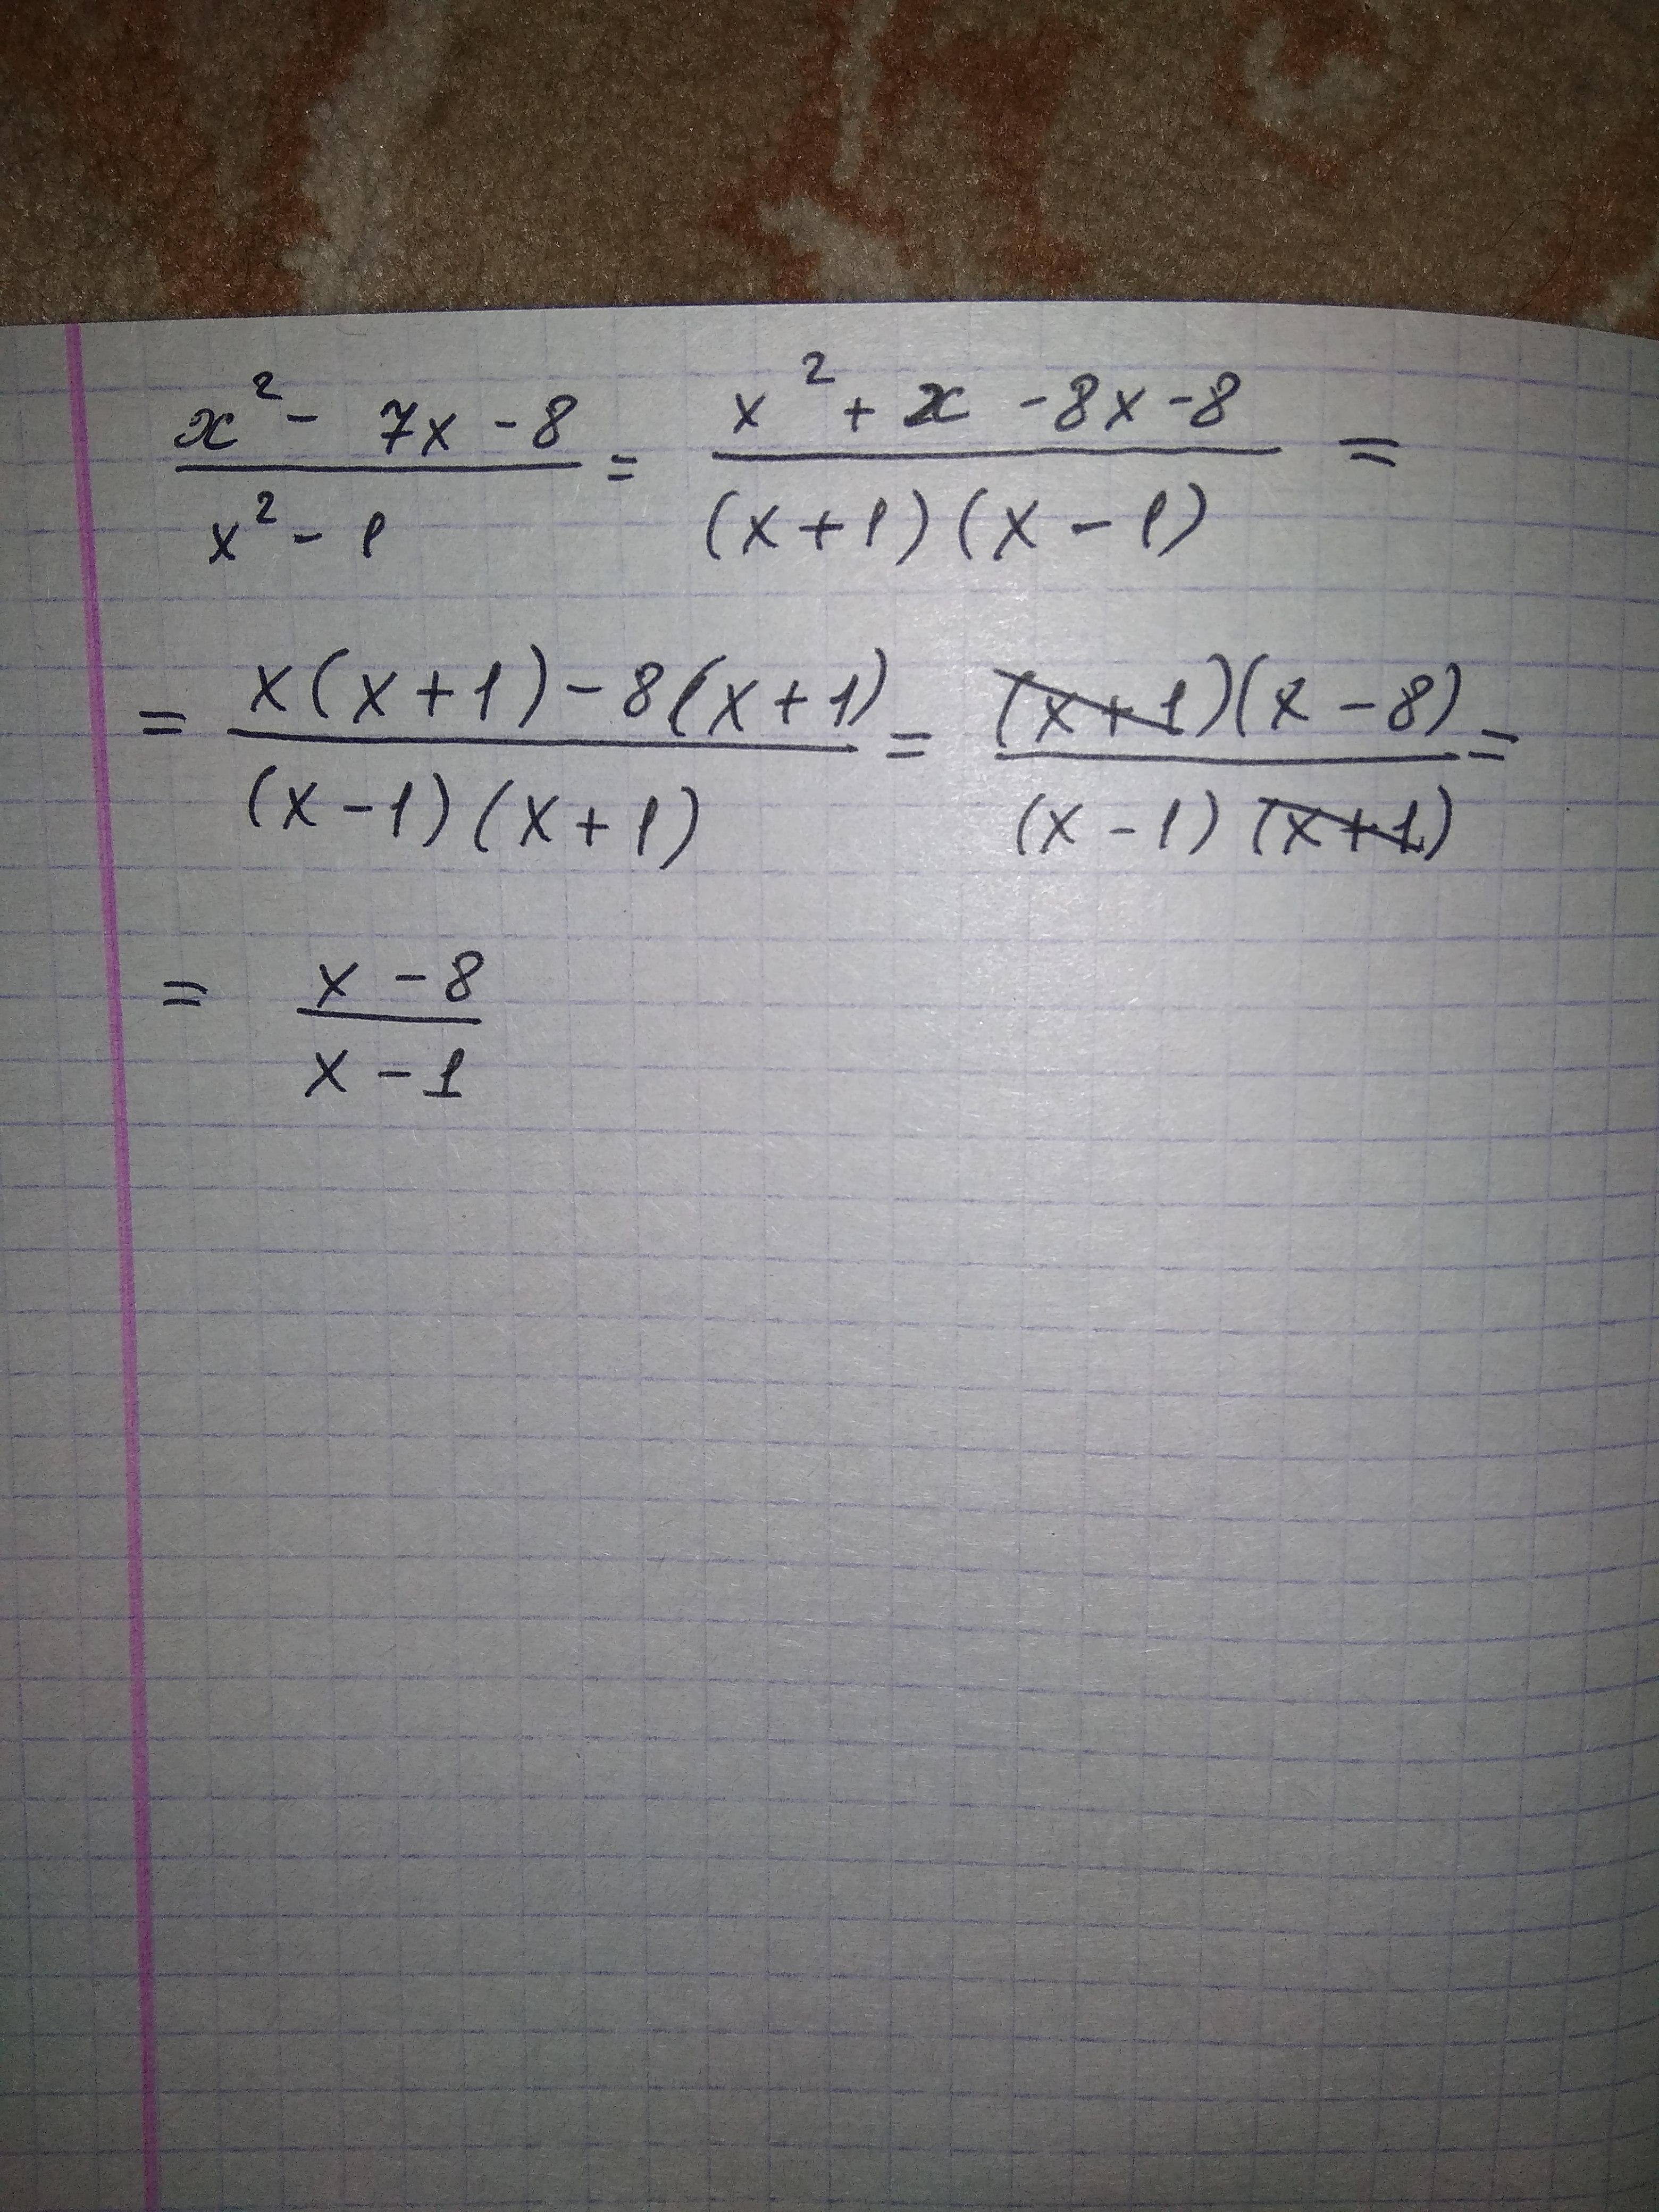 x² - 7x - 8 / x² - 1 = x² + x - 8x - 8 / (x+1)(x-1) =
= x(x+1) - 8(x+1) / (x-1)(x+1) = (x+1)(x-8) / (x-1)(x+1) =
= x - 8 / x - 1